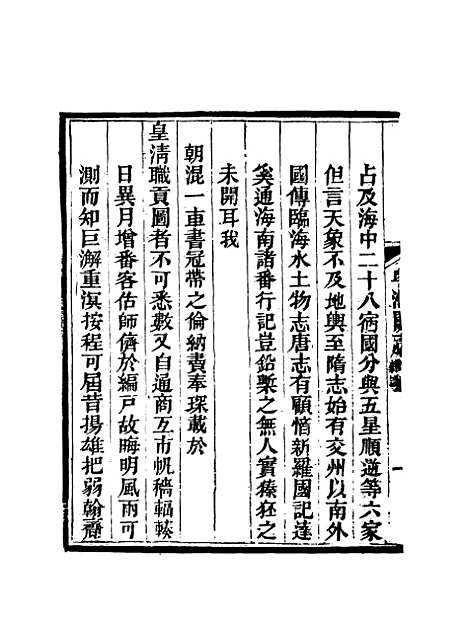 占及海中二十八宿國分與五星順逆等六家
但言天象不及地輿至隋志始有交州以南外
國傳臨海水土物志唐志有顧愔新羅國記達
奚通海南諸番行記豈鉛槧之無人實榛狉之
未開耳我
朝混一車書冠帶之倫納賮奉琛載於
皇清職貢圖者不可悉數又自通商互市帆檣輻輳
日異月增番客估師儕於編戶故晦明風雨可
測而知巨澥重溟按程可屆昔揚雄把弱翰齎